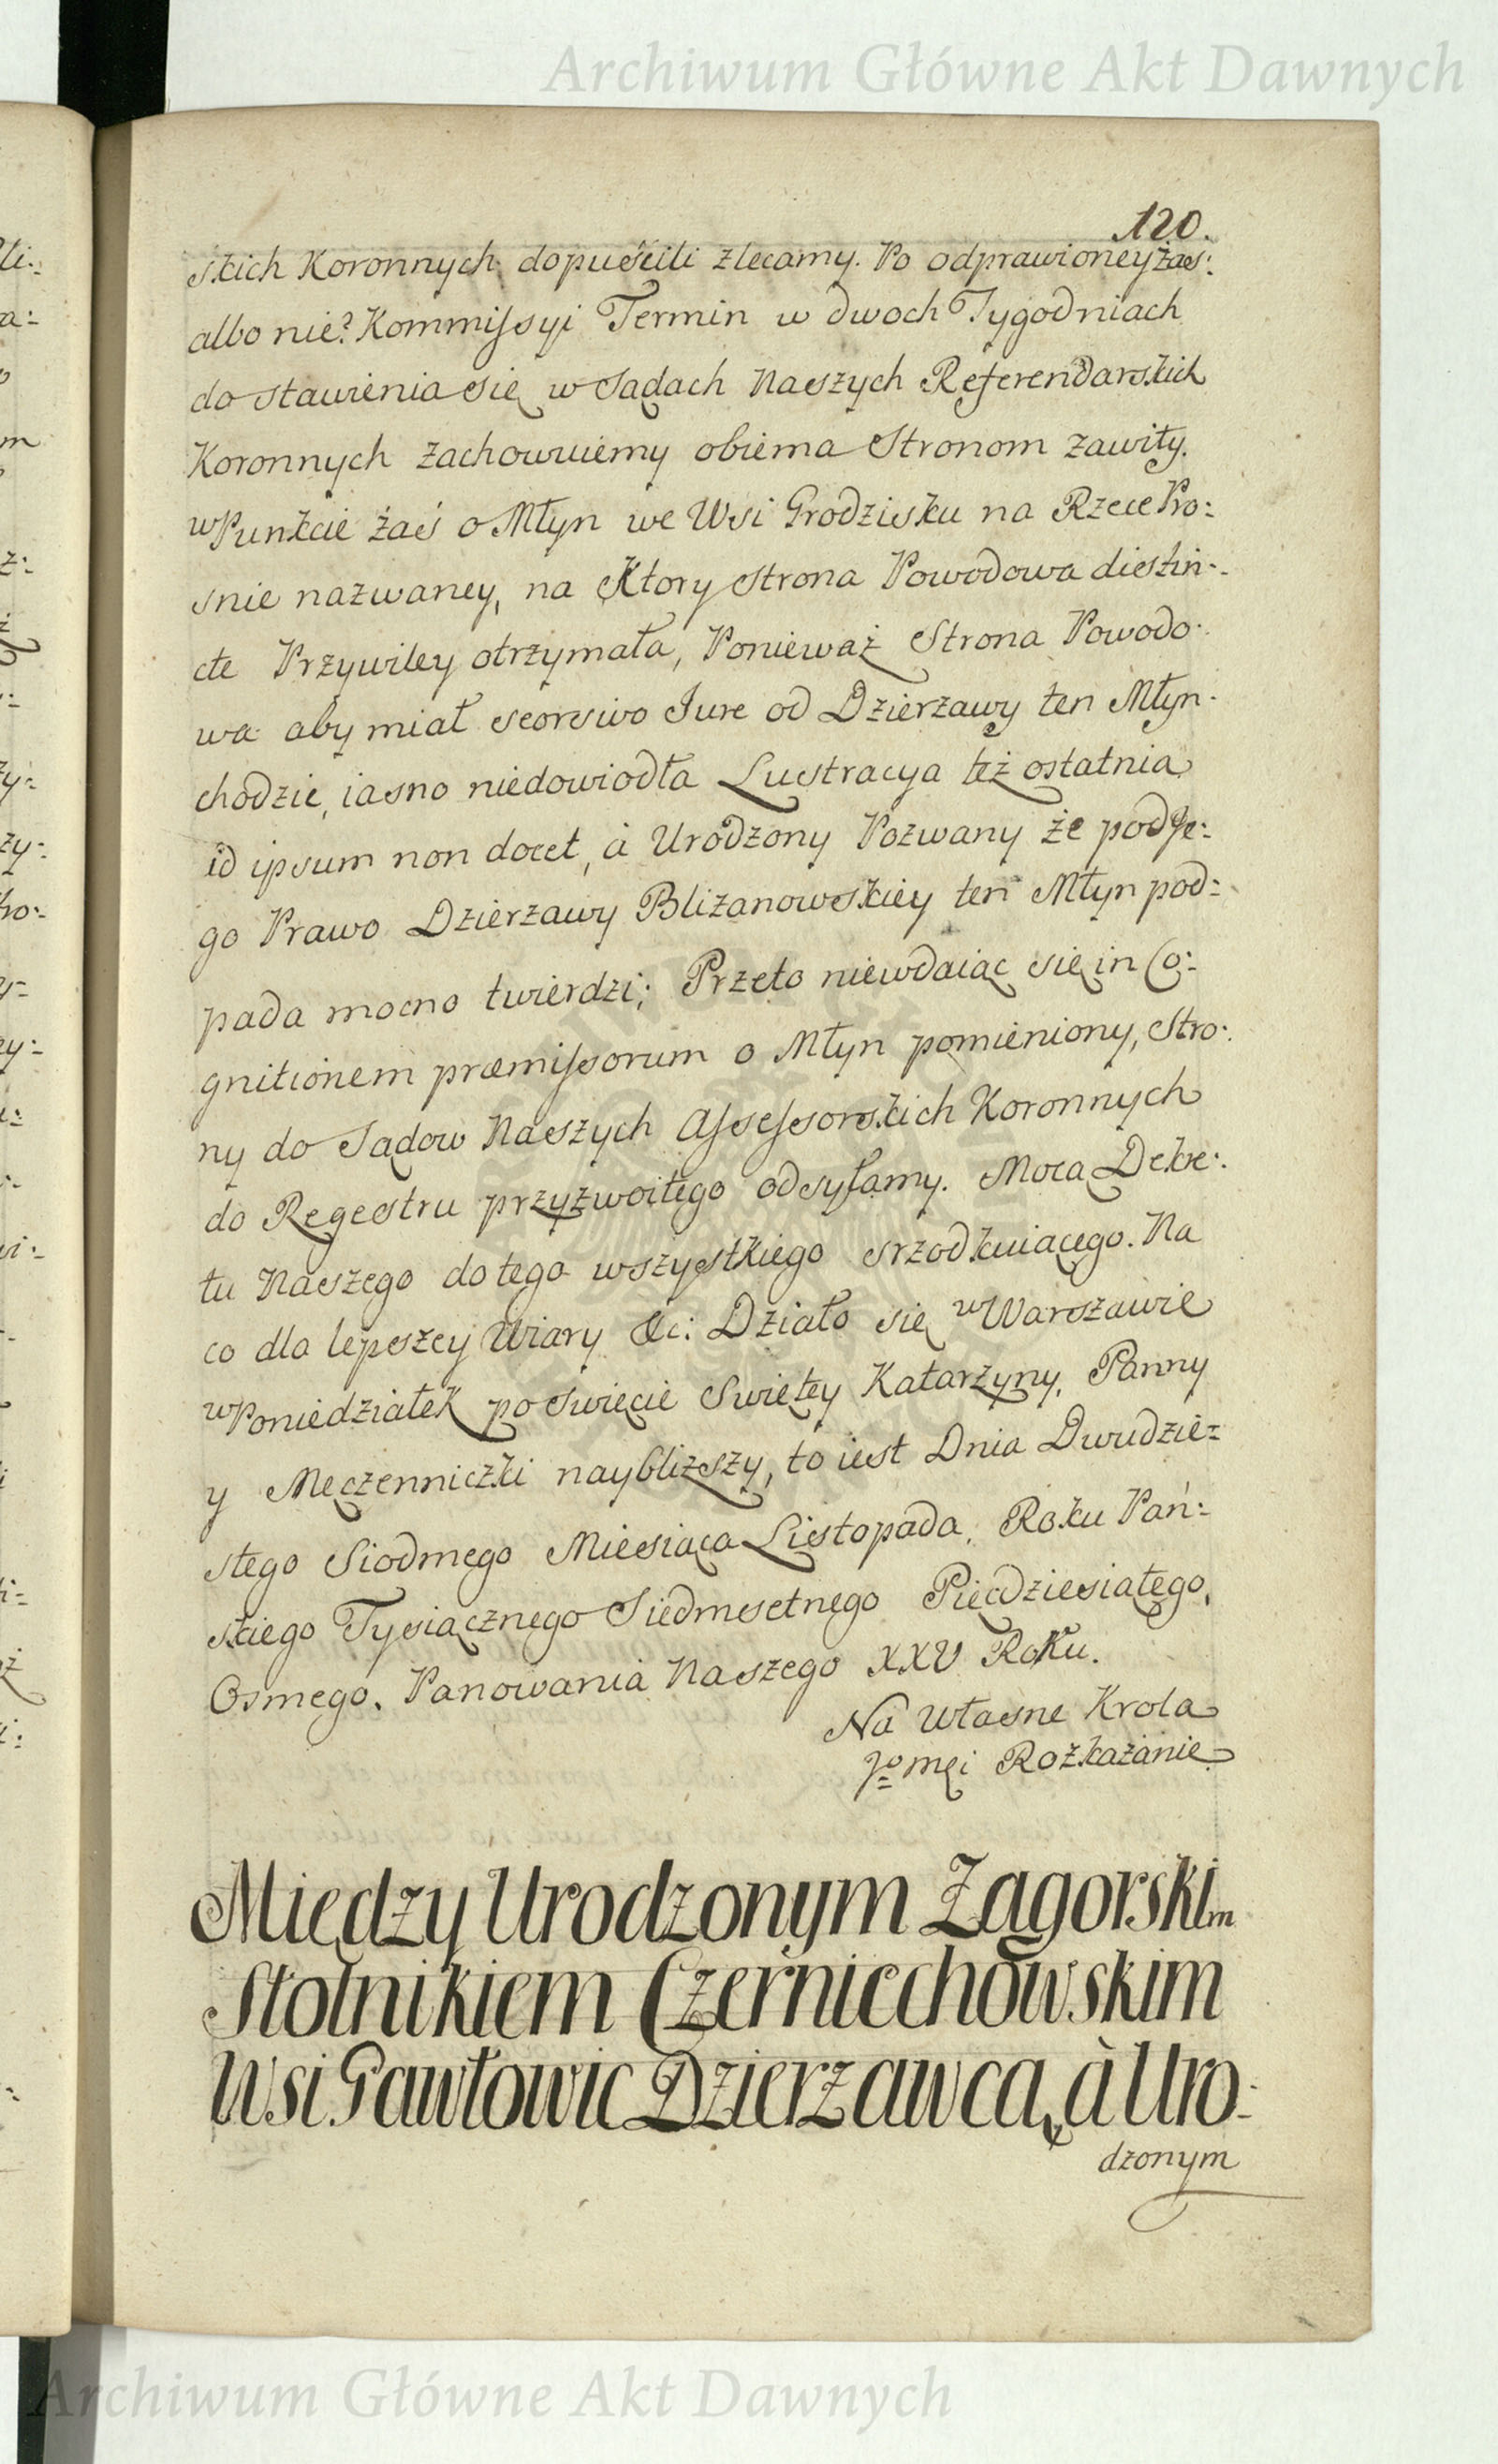 Archiwum Główne Akt Dawnych
120.
skich Koronnych dopuścili zlecamy. Po odprawioney żaś:
albo nie? Kommissyi Termin w dwoch Tygodniach
do stawienia się w Sądach Naszych Referendarskich
Koronnych zachowuiemy obiema Stronom zawity.
w Punkcie żaś o Młyn we Wsi Grodzisku na Rzece Pro:
snie nazwaney, na Ktory strona Powodowa distin:
cte Przywiley otrzymała, Ponieważ Strona Powodo:
wa aby miał seorsivo Jure od Dzierzawy ten Młyn
chodzić, iasno niedowiodła Lustracya też ostatnia
id ipsum non docet, à Urodzony Pozwany że pod Je:
go Prawo Dzierzawy Blizanowskiey ten Młyn pod:
pada mocno twierdzi; Przeto niewdaiąc się in Co:
gnitionem præmissorum o Młyn pomieniony, Stro:
ny do Sądow Naszych Assessorskich Koronnych
do Regestru przyzwoitego odsyłamy. Mocą Dekre:
tu Naszego do tego wszystkiego srzodkuiącego. Na
co dla lepszey Wiary &c: Działo się w Warszawie
w Poniedziałek po Swięcie Swiętey Katarzyny, Panny
y Męczenniczki nayblizszy, to iest Dnia Dwudzie:
stego Siodmego Miesiąca Listopada, Roku Pań:
skiego Tysiącznego Siedmsetnego Pięcdziesiątego,
Osmego. Panowania Naszego XXV Roku.
Na Własne Krola
Jo mci Rozkazanie
Między Urodzonym Zagorskim
Stolnikiem Czerniechowskim
Wsi Pawłowic Dzierzawcą, à Uro:
dzonym
Archiwum Główne Akt Dawnych